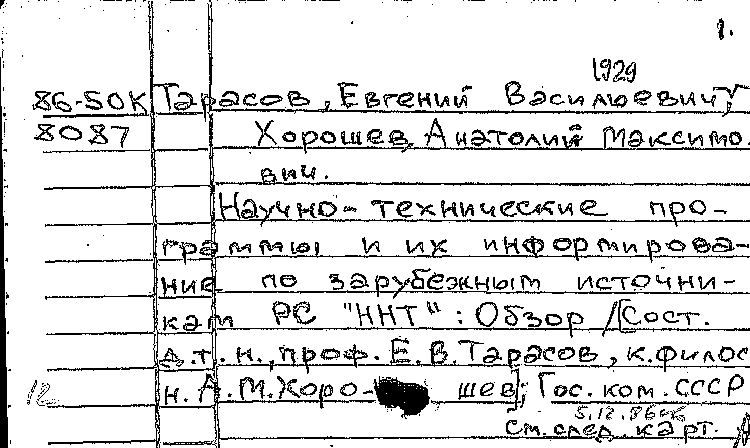 1.
1929
86-50К Тарасов, Евгений Васильевич;
8087 Хорошев, Анатолий Максимо-
вич.
Научно-технические про-
граммы и их информирова-
ние по зарубежным источни-
кам РС "ННТ": Обзор /[Сост.
д.т.н., проф. Е.В.Тарасов, к.филос.
12 н. А.М.Хоро- шев]; Гос. ком. СССР
5.12.86
см. след. карт.